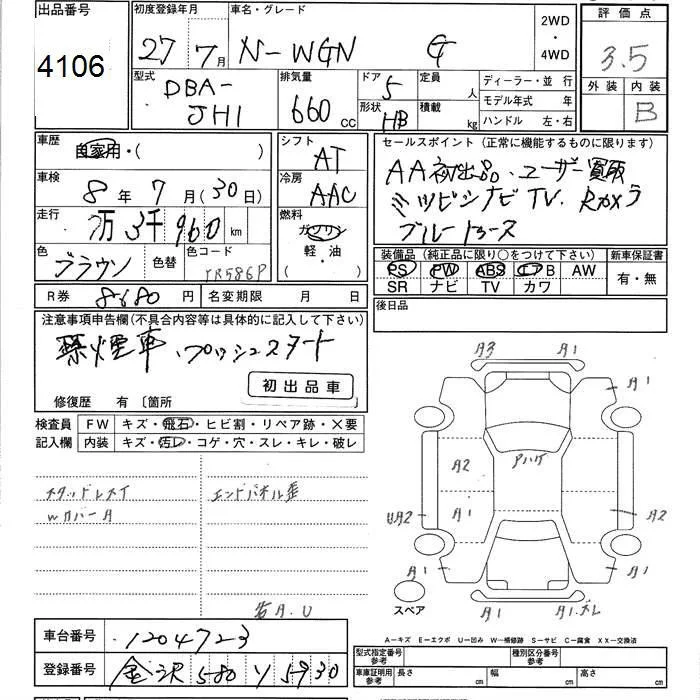 出品番号 4106
初度登録年月 27年 7月
車名・グレード N-WGN G
2WD・4WD
評価点 3.5
外装 内装 B
型式 DBA-JH1
排気量 660 CC
ドア 5
形状 HB
定員 人
積載 kg
ディーラー・並 行
モデル年式 年
ハンドル 左・右
車歴 自家用・( )
車検 8年 7月(30日)
走行 万 3千 960 km
色 ブラウン 色替
色コード YR586P
シフト AT
冷房 AAC
燃料 ガソリン 軽・油
セールスポイント (正常に機能するものに限ります)
AA初出品、ユーザー買取
ミツビシナビ TV、Rカメラ
ブルートゥース
装備品 (純正品に限り○をつけて下さい)
PS PW ABS エアB AW
SR ナビ TV カワ
新車保証書
有・無
R券 8680 円
名変期限 月 日
後日品
注意事項申告欄(不具合内容等は具体的に記入して下さい)
禁煙車、プッシュスタート
初出品車
修復歴 有 〔箇所
検査員記入欄
FW キズ・飛石・ヒビ割・リペア跡・×要
内装 キズ・汚レ・コゲ・穴・スレ・キレ・破レ
スタッドレスイ
WカバーA
エンドパネル歪
省A.U
A3 A1
A1 A1
A2 アハゲ
A1
UA2 A2
A1 A1
A1 A1.ズレ
スペア
A-キズ E-エクボ U-凹み W-補修跡 S-サビ C-腐食 XX-交換済
車台番号 1204723
登録番号 金沢 580 ソ 5930
型式指定番号 参考
種別区分番号 参考
車庫証明用 参考
長さ cm 幅 cm 高さ cm